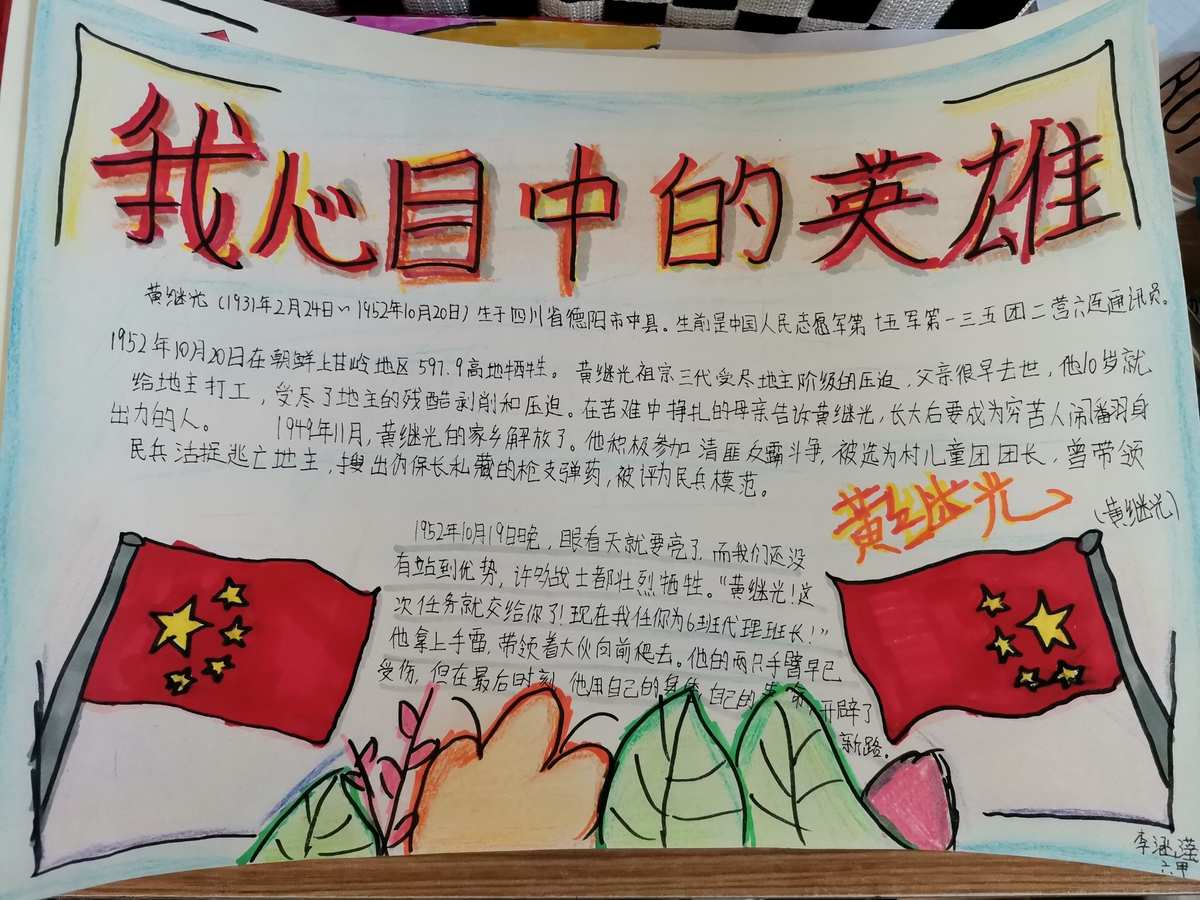 我心目中的英雄
黄继光（1931年2月24日~1952年10月20日）生于四川省德阳市中县。生前是中国人民志愿军第十五军第一三五团二营六连通讯员。
1952年10月20日在朝鲜上甘岭地区597.9高地牺牲。黄继光祖宗三代受尽地主阶级的压迫，父亲很早去世，他10岁就
给地主打工，受尽了地主的残酷剥削和压迫。在苦难中挣扎的母亲告诉黄继光，长大后要成为穷苦人闹翻身
出力的人。 1949年11月，黄继光的家乡解放了。他积极参加清匪反霸斗争，被选为村儿童团团长，曾带领
民兵活捉逃亡地主，搜出伪保长私藏的枪支弹药，被评为民兵模范。
黄继光
（黄继光）
1952年10月19日晚，眼看天就要亮了，而我们还没
有站到优势，许多战士都壮烈牺牲。“黄继光！这
次任务就交给你了！现在我任你为6班代理班长！”
他拿上手雷，带领着大伙向前爬去。他的两只手臂早已
受伤，但在最后时刻，他用自己的身体 自己的 开辟了
新路。
李涵滢
六甲